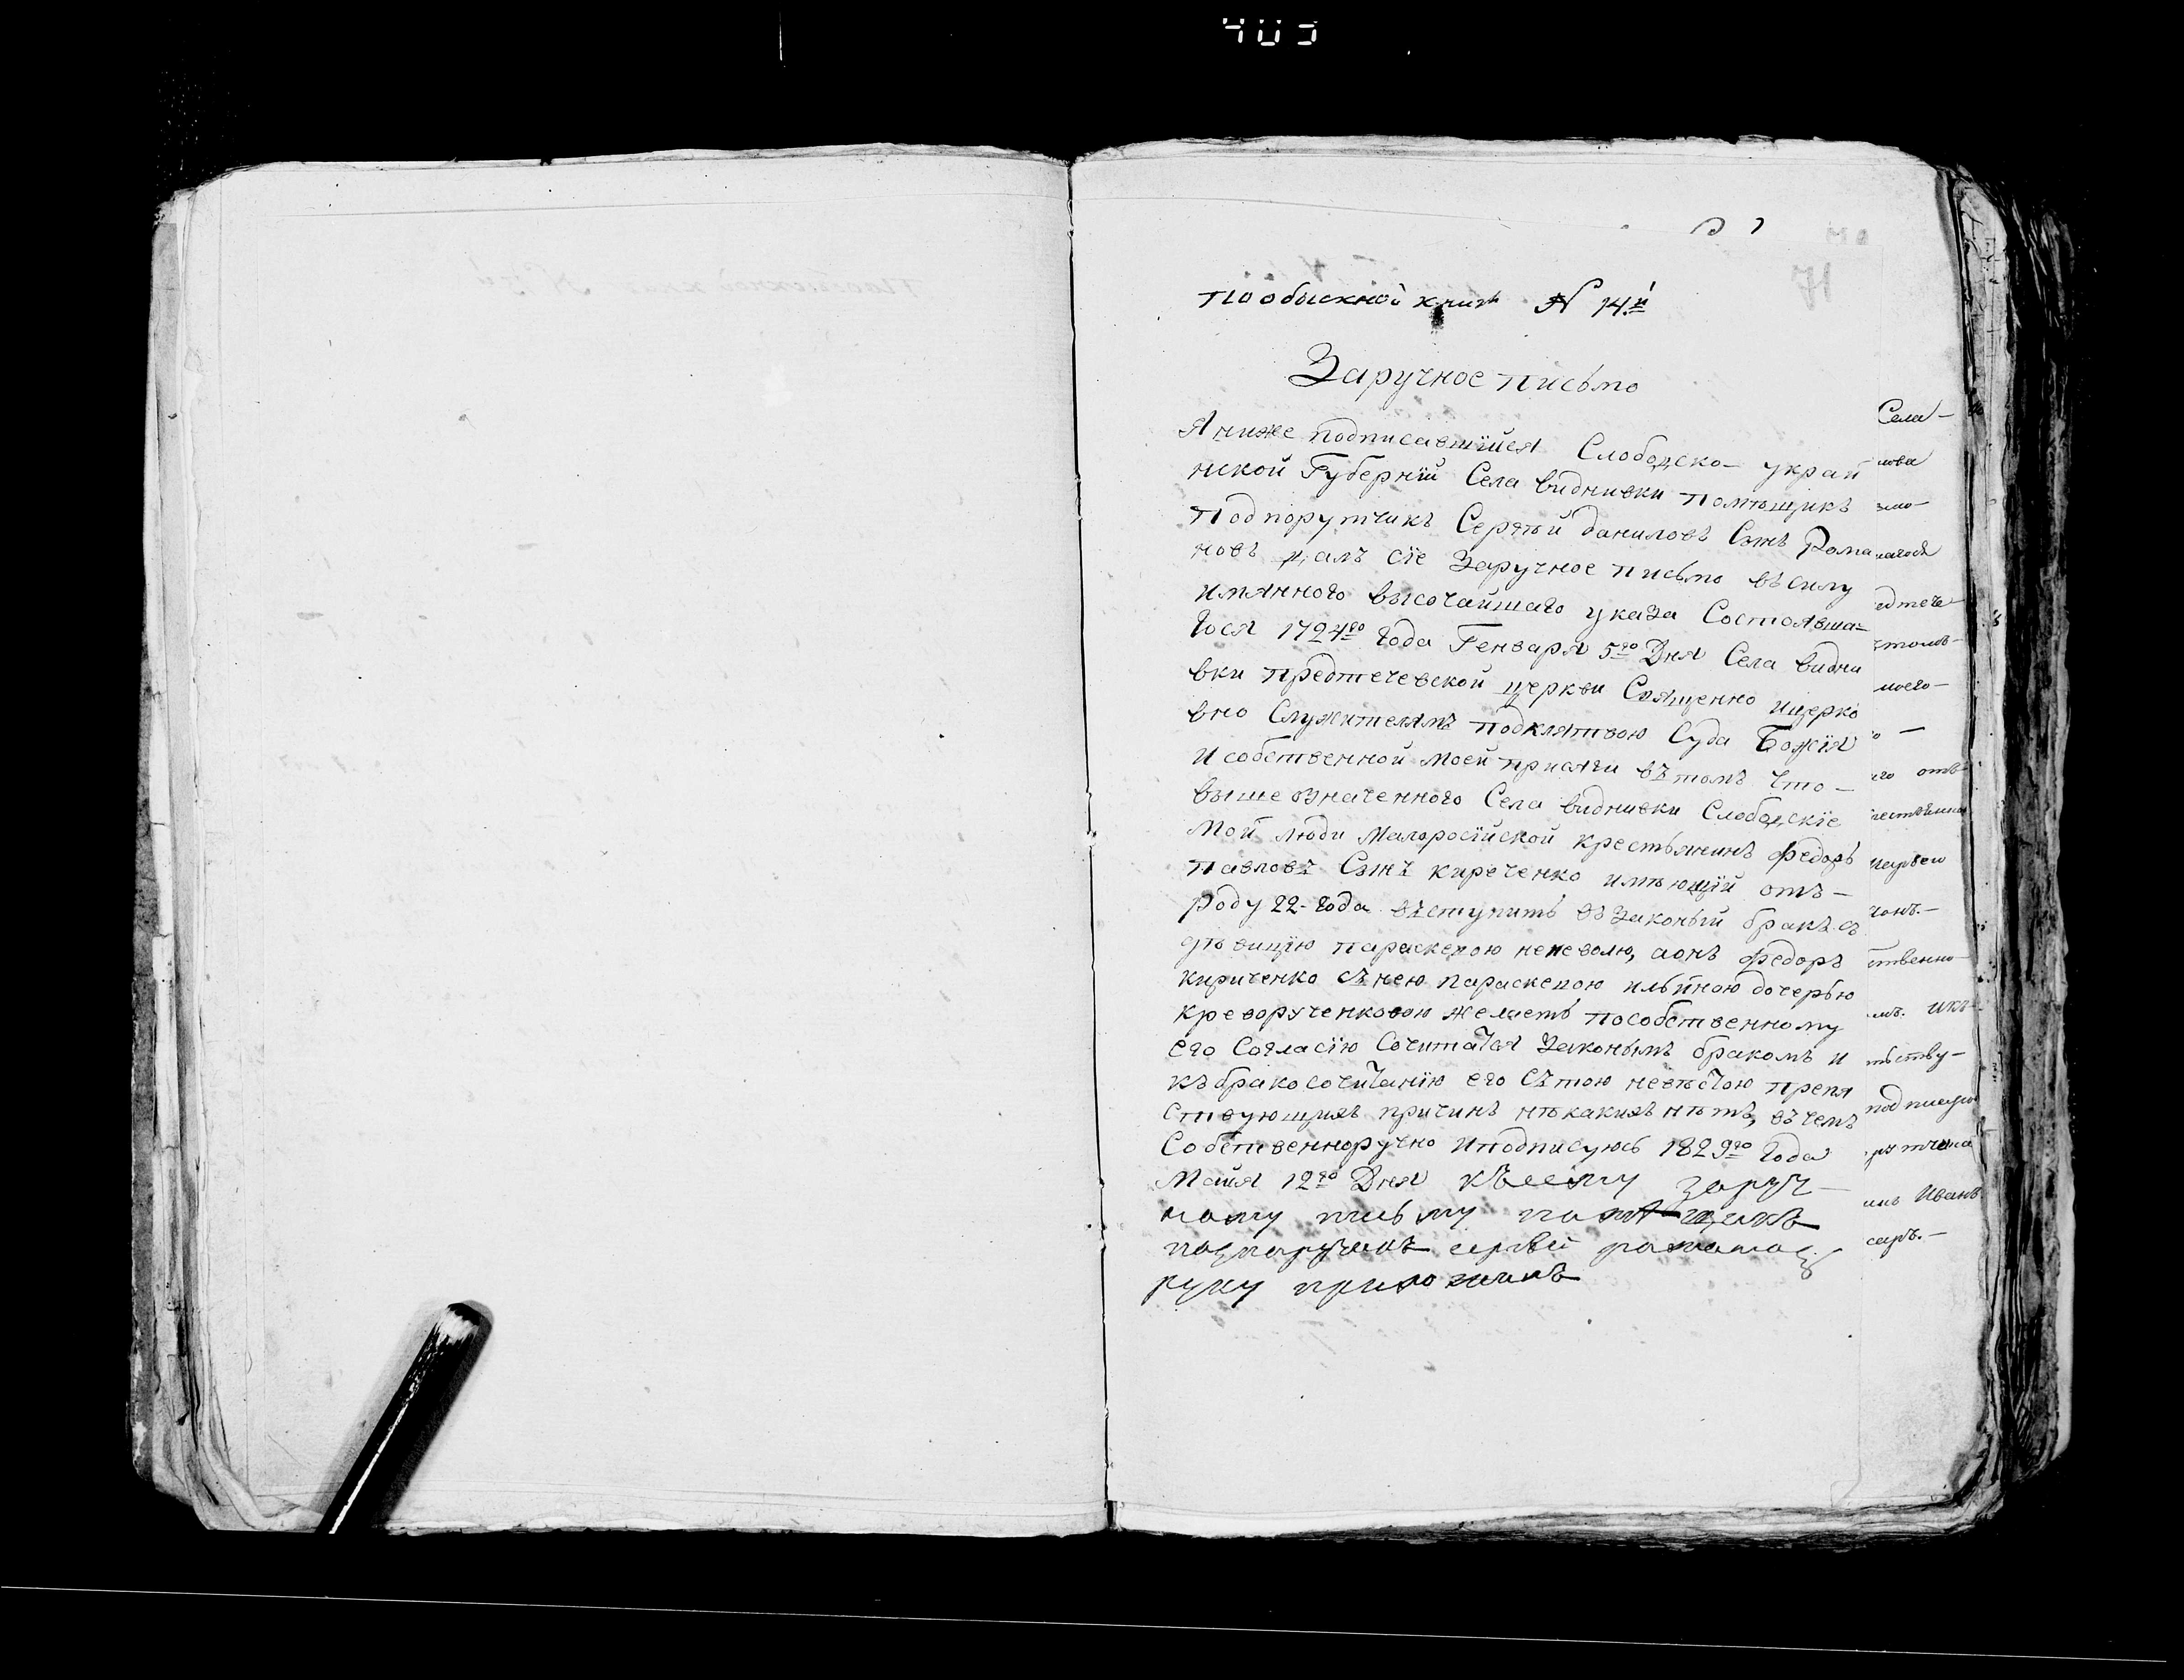 403
71
Пообыскной книгѣ N 14й
Заручное письмо
Я ниже подписавшійся Слободско- украй
нской Губерніи Села видневки помѣщикъ
Подпорутчикъ Сергѣй даниловъ Сынъ Рома
новъ далъ сіе Заручное письмо въ силу
имянного высочайшаго указа Состоявша=
гося 1724го Года Генваря 5го Дня Села видни
вки предтечевской церкви Священно ицерко
вно Служителямъ подклятвою Суда Божія
И собственной моей присяги вътомъ что -
выше означенного Села видневки Слободскіе
Мои люди Малоросійской крестьянинъ Федоръ
Павловъ Сынъ киреченко имѣющій отъ -
роду 22- Года въступить въ Законый бракъ съ
дѣвицію параскевою неневолю, аонъ Федоръ
кириченко сънею параскевою ильиною дочерью
креворученковою желаетъ пособственному
его Согласію Сочитатся Законымъ бракомъ и
къ бракосочитанію его сътою невѣстою препя
ствующихъ причинъ нѣкакихъ нѣтъ, въ чемъ
Собственноручно Иподписуюсь 1829го Года
Майя 12го Дня Къ сему заруч
ному письму помѣщикъ
подпоручикъ сергѣй романов
руку приложилъ
Села -
едтече-
моего-
его отв
твенно-
подписую
Иванъ